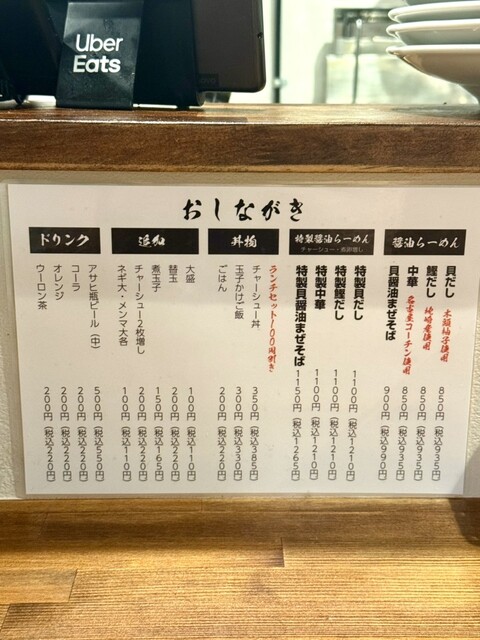 Uber
Eats
おしながき
醤油らーめん
貝だし 木頭柚子使用 850円(税込935円)
鰹だし 枕崎産使用 850円(税込935円)
中華 名古屋コーチン使用 850円(税込935円)
貝醤油まぜそば 900円(税込990円)
特製醤油らーめん
特製貝だし 1100円(税込1210円)
特製鰹だし 1100円(税込1210円)
特製中華 1100円(税込1210円)
特製貝醤油まぜそば 1150円(税込1265円)
丼物
ランチセット100円引き
チャーシュー丼 350円(税込385円)
玉子かけご飯 300円(税込330円)
ごはん 200円(税込220円)
追加
大盛 100円(税込110円)
替玉 200円(税込220円)
煮玉子 150円(税込165円)
チャーシュー2枚増し 200円(税込220円)
ネギ大・メンマ大各 100円(税込110円)
ドリンク
アサヒ瓶ビール(中) 500円(税込550円)
コーラ 200円(税込220円)
オレンジ 200円(税込220円)
ウーロン茶 200円(税込220円)